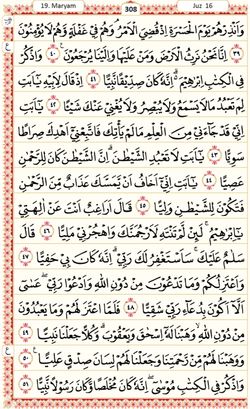 19. Maryam 308 Juz 16
وَاَنْذِرْهُمْ يَوْمَ الْحَسْرَةِ اِذْ قُضِيَ الْاَمْرُ وَهُمْ فِيْ غَفْلَةٍ وَّهُمْ لَا يُؤْمِنُوْنَ
٣٩ اِنَّا نَحْنُ نَرِثُ الْاَرْضَ وَمَنْ عَلَيْهَا وَاِلَيْنَا يُرْجَعُوْنَ ٤٠ وَاذْكُرْ
فِي الْكِتٰبِ اِبْرٰهِيْمَ اِنَّهٗ كَانَ صِدِّيْقًا نَّبِيًّا ٤١ اِذْ قَالَ لِاَبِيْهِ يٰٓاَبَتِ
لِمَ تَعْبُدُ مَا لَا يَسْمَعُ وَلَا يُبْصِرُ وَلَا يُغْنِيْ عَنْكَ شَيْـًٔا ٤٢ يٰٓاَبَتِ
اِنِّيْ قَدْ جَاۤءَنِيْ مِنَ الْعِلْمِ مَا لَمْ يَأْتِكَ فَاتَّبِعْنِيْٓ اَهْدِكَ صِرَاطًا
سَوِيًّا ٤٣ يٰٓاَبَتِ لَا تَعْبُدِ الشَّيْطٰنَ اِنَّ الشَّيْطٰنَ كَانَ لِلرَّحْمٰنِ
عَصِيًّا ٤٤ يٰٓاَبَتِ اِنِّيْٓ اَخَافُ اَنْ يَّمَسَّكَ عَذَابٌ مِّنَ الرَّحْمٰنِ
فَتَكُوْنَ لِلشَّيْطٰنِ وَلِيًّا ٤٥ قَالَ اَرَاغِبٌ اَنْتَ عَنْ اٰلِهَتِيْ
يٰٓاِبْرٰهِيْمُ لَىِٕنْ لَّمْ تَنْتَهِ لَاَرْجُمَنَّكَ وَاهْجُرْنِيْ مَلِيًّا ٤٦ قَالَ
سَلٰمٌ عَلَيْكَ سَاَسْتَغْفِرُ لَكَ رَبِّيْ اِنَّهٗ كَانَ بِيْ حَفِيًّا ٤٧
وَاَعْتَزِلُكُمْ وَمَا تَدْعُوْنَ مِنْ دُوْنِ اللّٰهِ وَاَدْعُوْا رَبِّيْ عَسٰٓى
اَلَّآ اَكُوْنَ بِدُعَاۤءِ رَبِّيْ شَقِيًّا ٤٨ فَلَمَّا اعْتَزَلَهُمْ وَمَا يَعْبُدُوْنَ
مِنْ دُوْنِ اللّٰهِ وَهَبْنَا لَهٗٓ اِسْحٰقَ وَيَعْقُوْبَ وَكُلًّا جَعَلْنَا نَبِيًّا ٤٩
وَوَهَبْنَا لَهُمْ مِّنْ رَّحْمَتِنَا وَجَعَلْنَا لَهُمْ لِسَانَ صِدْقٍ عَلِيًّا ٥٠
وَاذْكُرْ فِي الْكِتٰبِ مُوْسٰٓى اِنَّهٗ كَانَ مُخْلَصًا وَّكَانَ رَسُوْلًا نَّبِيًّا ٥١